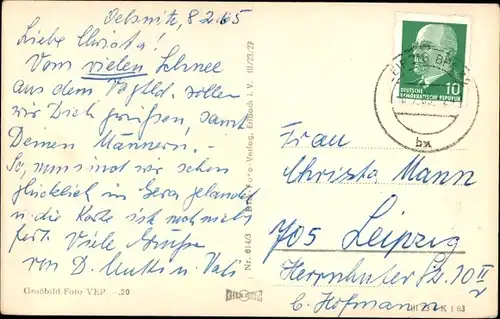 Oelsnitz, 8.2.65
Liebe Christa!
Vom vielen Schnee
aus dem Vogtld. wollen
wir Dich grüßen, samt
Deinen Männern.-
So, nun sind wir schon
glücklich in Gera gelandet
u. die Karte ist noch nicht
fort. Viele Grüße
von D. Mutti u. Vati
Großbild-Foto VEP -.20
III/23/27
Verlag, Erlbach i. V.
Nr. 614/3
DEUTSCHE
DEMOKRATISCHE REPUBLIK
10
bx
Frau
Christa Mann
705 Leipzig
Herrnhuter Str. 10 II
b. Hofmann
K 1 63